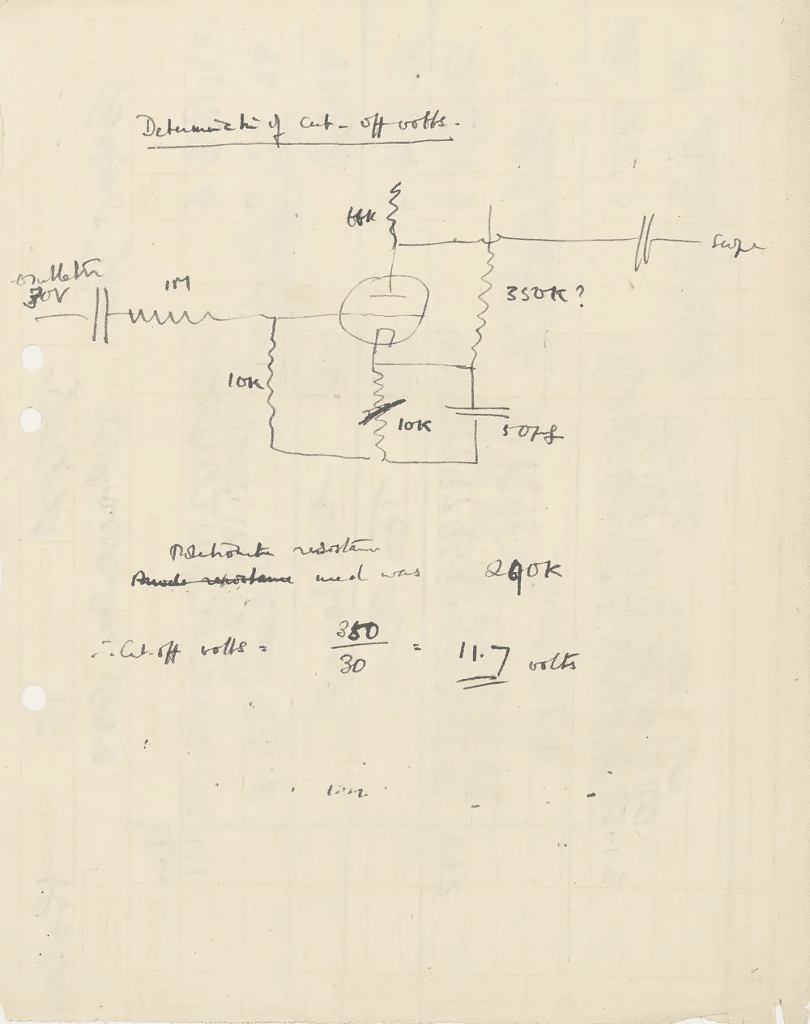 Determination of Cut-off volts.
68K
Scope
oscillator
30V
1M
350K?
10K
10K
50μf
resistance
Anode resistance used was 290K
∴ Cut-off volts = 350/30 = 11.7 volts